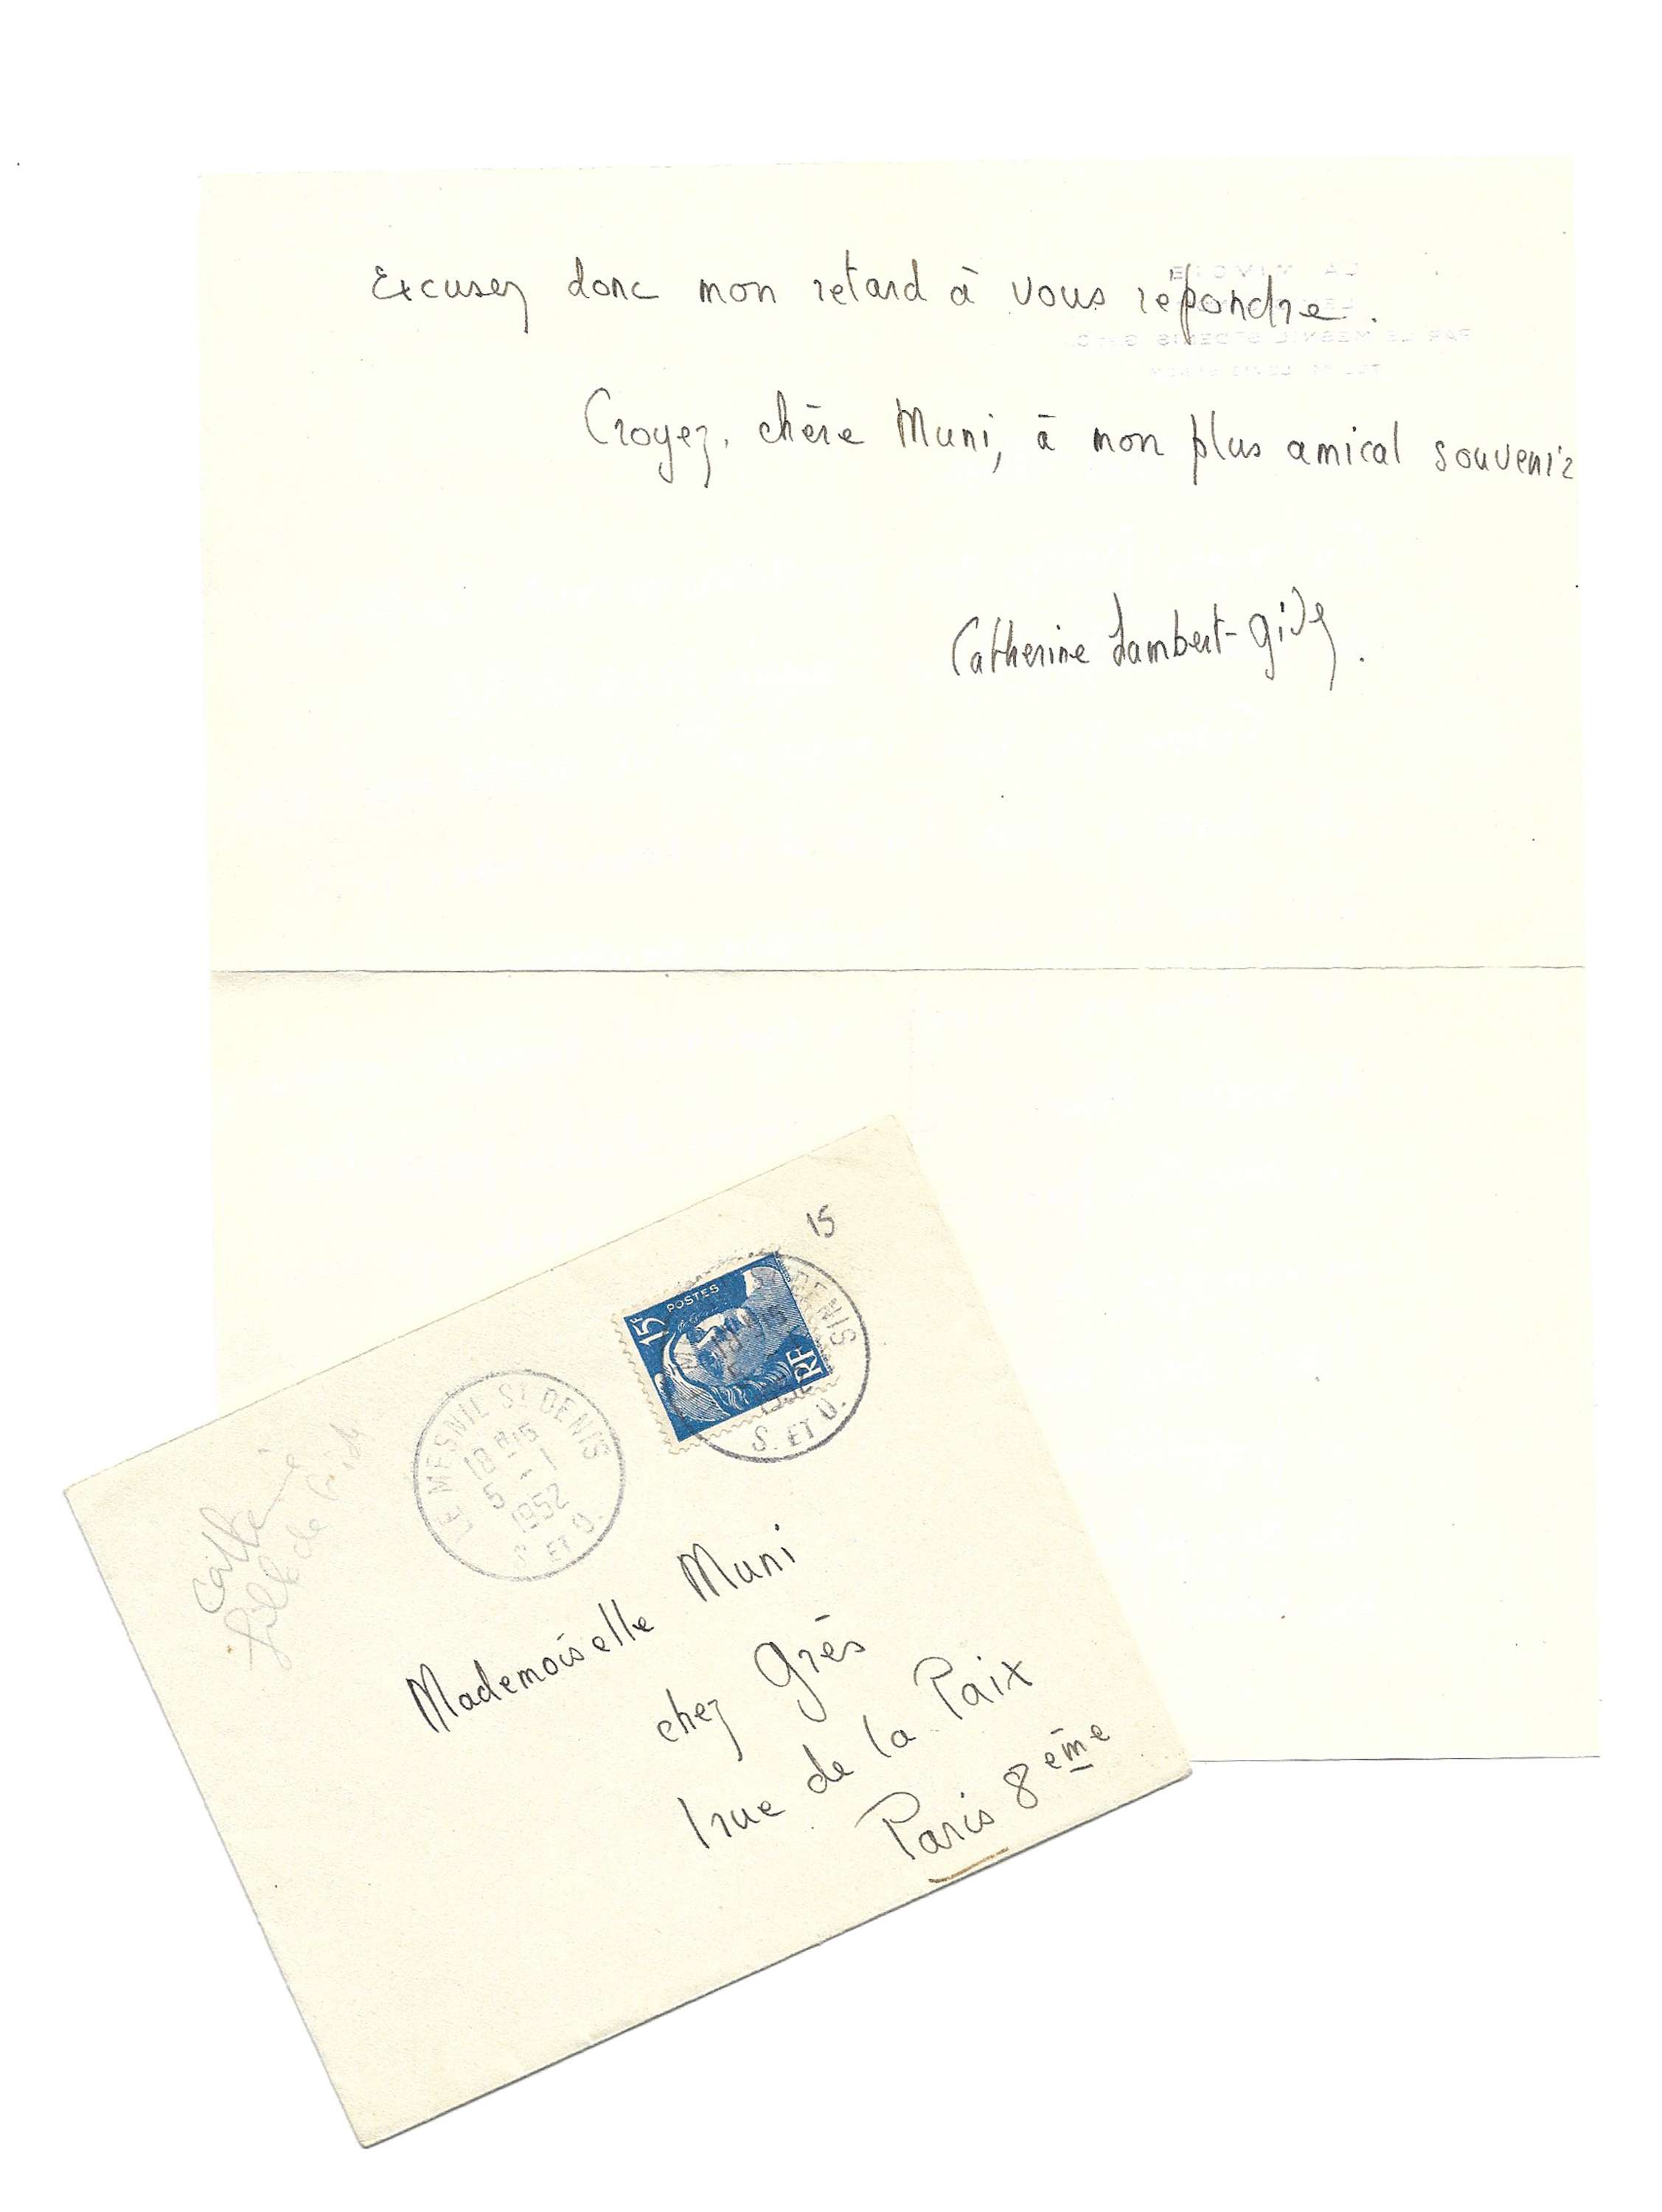 Excusez donc mon retard à vous répondre.
Croyez, chère Muni, à mon plus amical souvenir
Catherine Lambert-Gide.
15
POSTES
15F
RF
ST DENIS
S. ET O.
LE MESNIL ST DENIS
18H15
5 - 1
1952
S. ET O.
Catherine
fille de Gide
Mademoiselle Muni
chez Grès
1 rue de la Paix
Paris 8ème